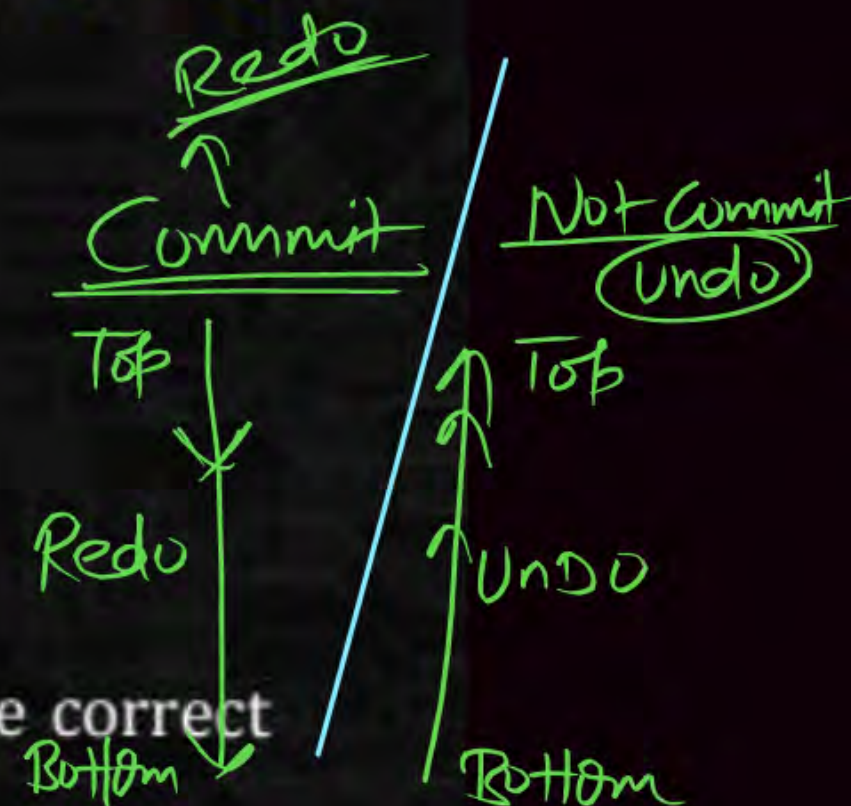 Redo
Commit
Top
Redo
e correct
Bottom
Not Commit
Undo
Top
UnDO
Bottom